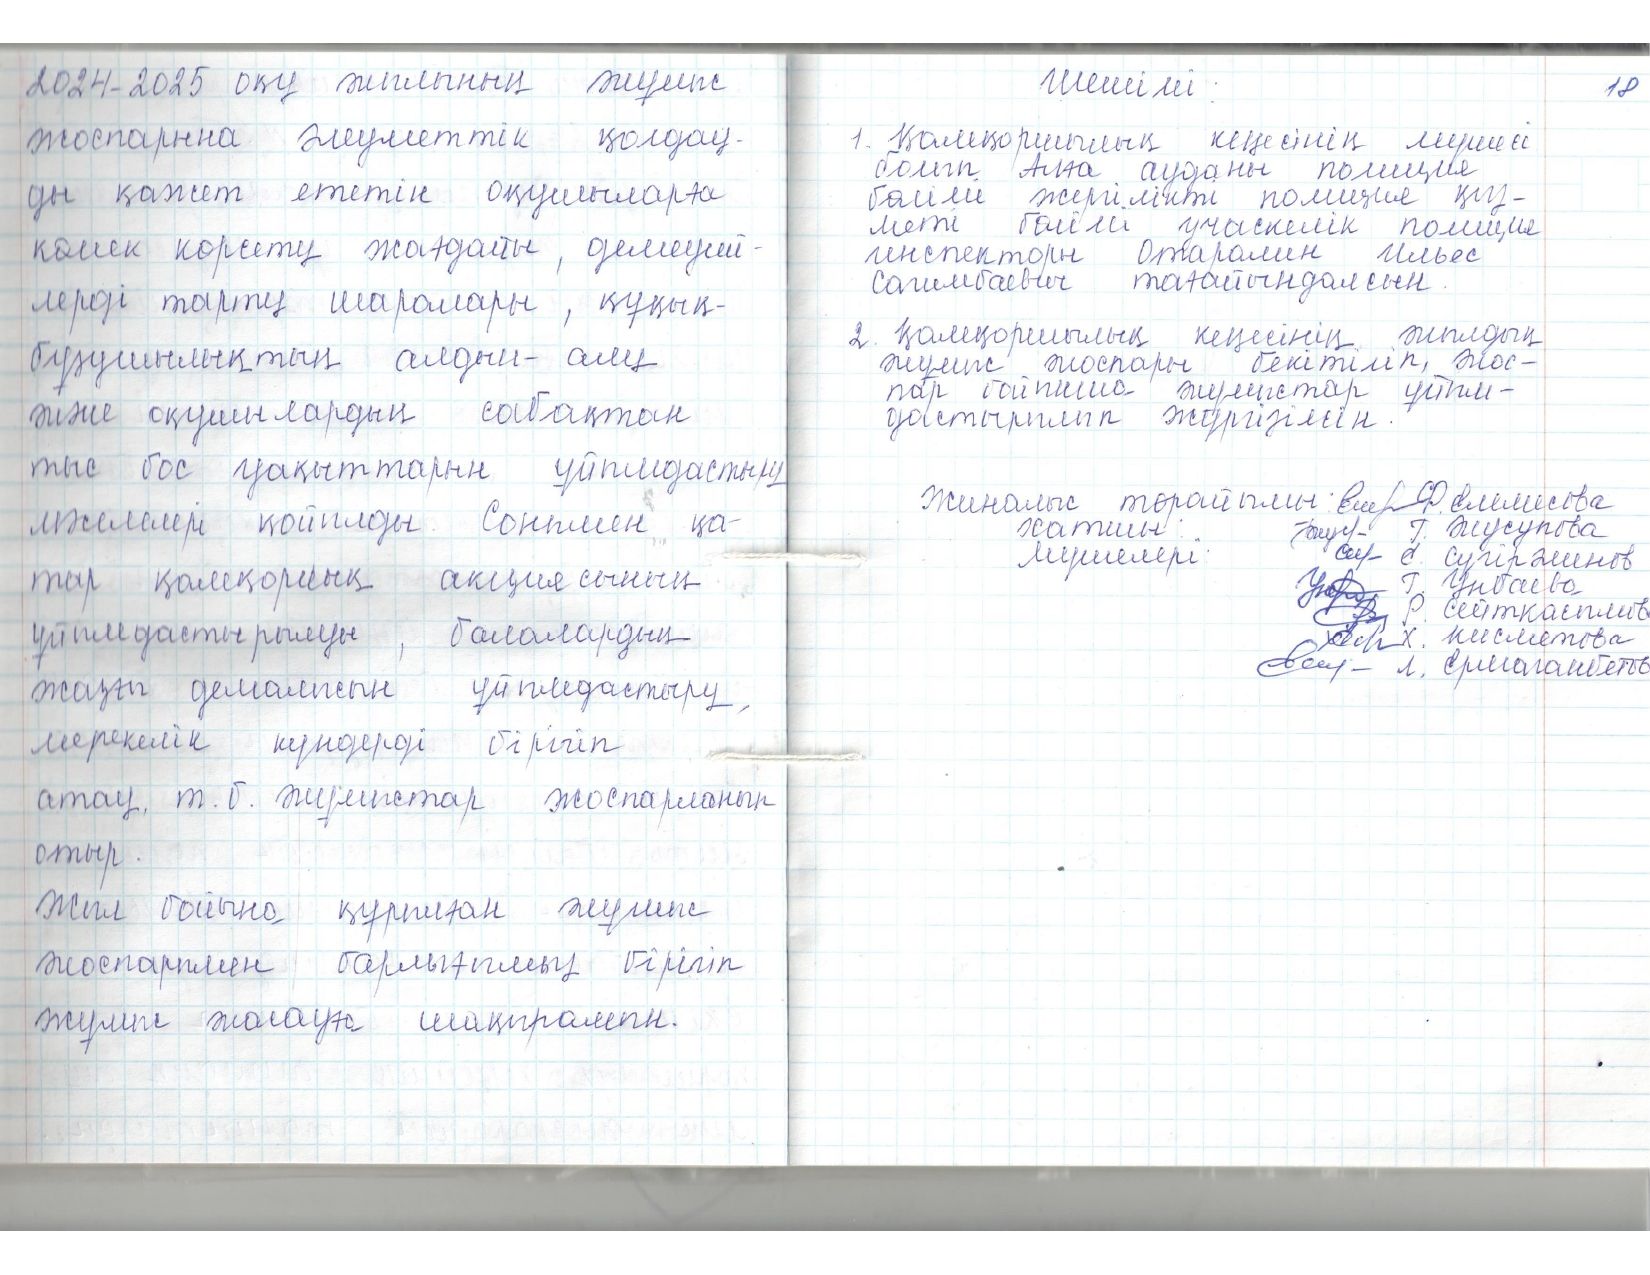 2024-2025 оқу жылының жұмыс
жоспарына әлеуметтік қолдау-
ды қажет ететін оқушыларға
көмек көрсету жағдайы, демеуші-
лерді тарту шаралары, құқық-
бұзушылықтың алдын-алу
және оқушылардың сабақтан
тыс бос уақыттарын ұйымдастыру
мәселелері қойылды. Сонымен қа-
тар қамқорлық акциясының
ұйымдастырылуы, балалардың
жазғы демалысын ұйымдастыру,
мерекелік күндерді бірігіп
атау, т.б. жұмыстар жоспарланып
отыр.
Жыл бойына құрылған жұмыс
жоспарымен барлығымыз бірігіп
жұмыс жасауға шақырамын.
18
Шешімі:
1. Қамқоршылық кеңесінің мүшесі
болып Алға ауданы полиция
бөлімі жергілікті полиция қыз-
меті бөлімі учаскелік полиция
инспекторы Отаралин Ильяс
Сагимбаевич тағайындалсын.
2. Қамқоршылық кеңесінің жылдық
жұмыс жоспары бекітіліп, жос-
пар бойынша жұмыстар ұйым-
дастырылып жүргізілсін.
Жиналыс төрайымы: Ф. Елемесова
хатшы: Г. Жусупова
Мүшелері: С. Сугіралинов
Г. Унбаева
Р. Сейтқасымов
Х. Кисметова
Л. Ермаганбетов